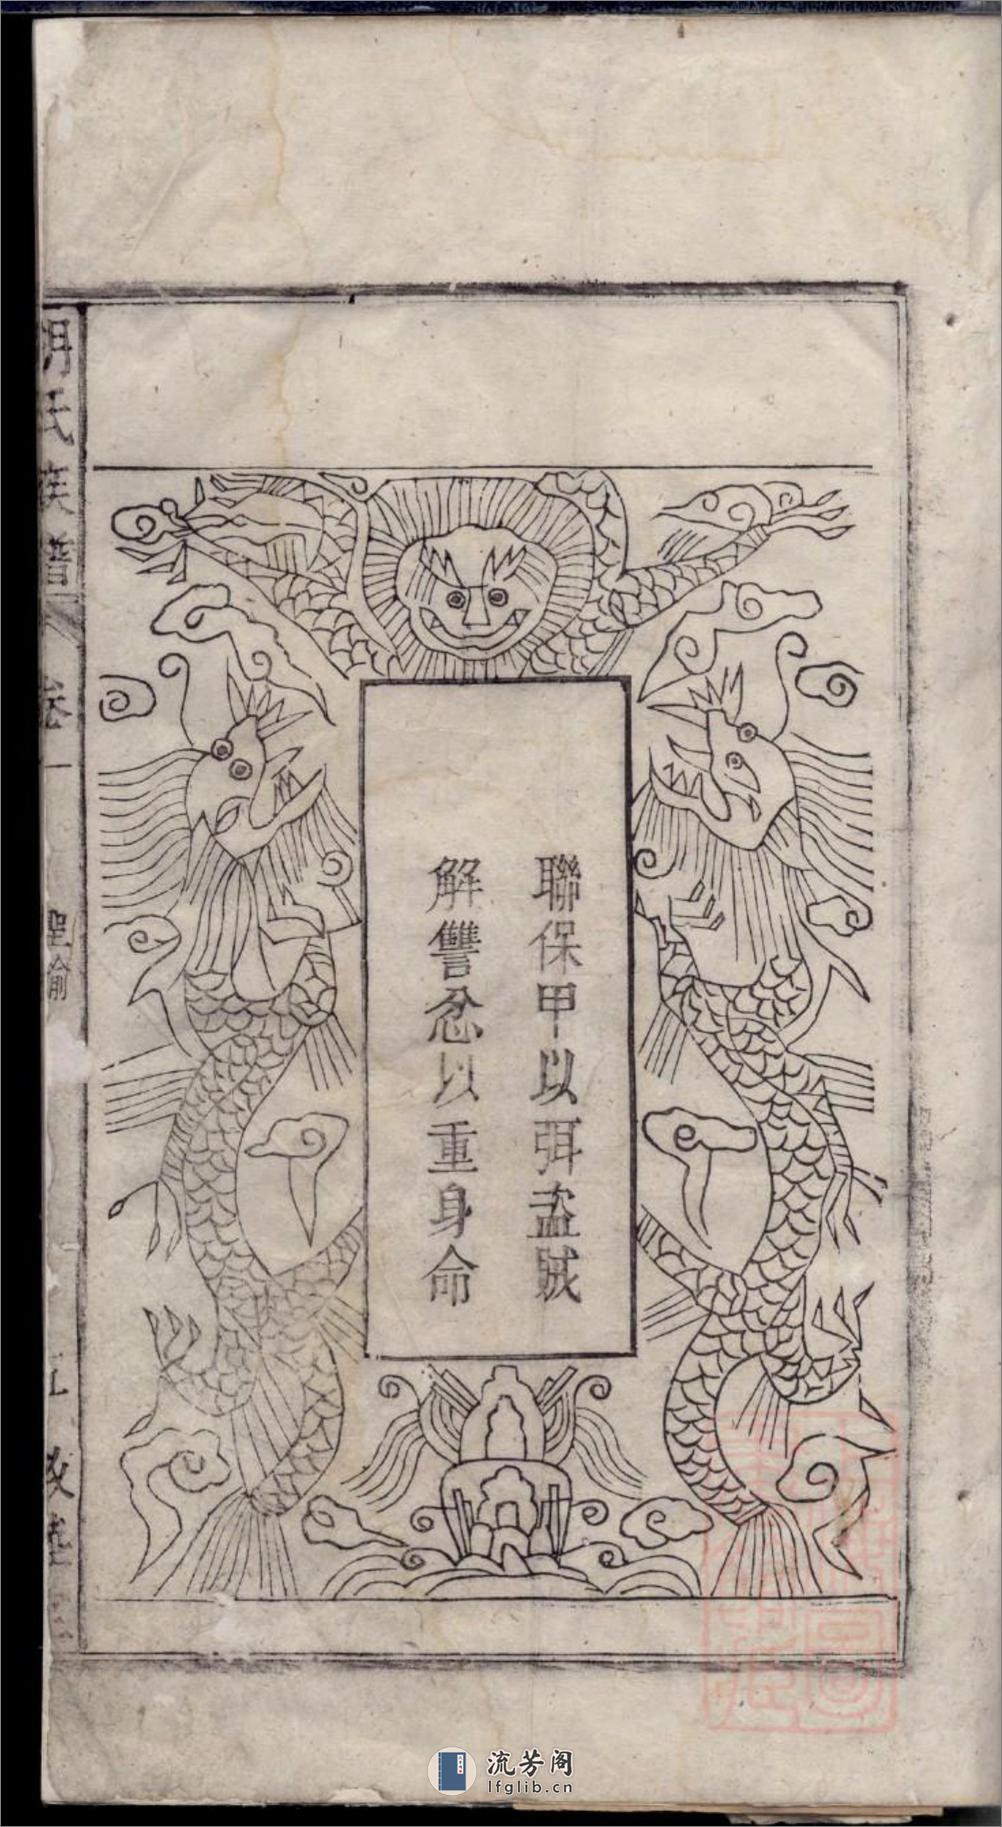 聯保甲以弭盗賊
解讐忿以重身命
氏族譜
卷一
聖諭
流芳阁
lfglib.cn